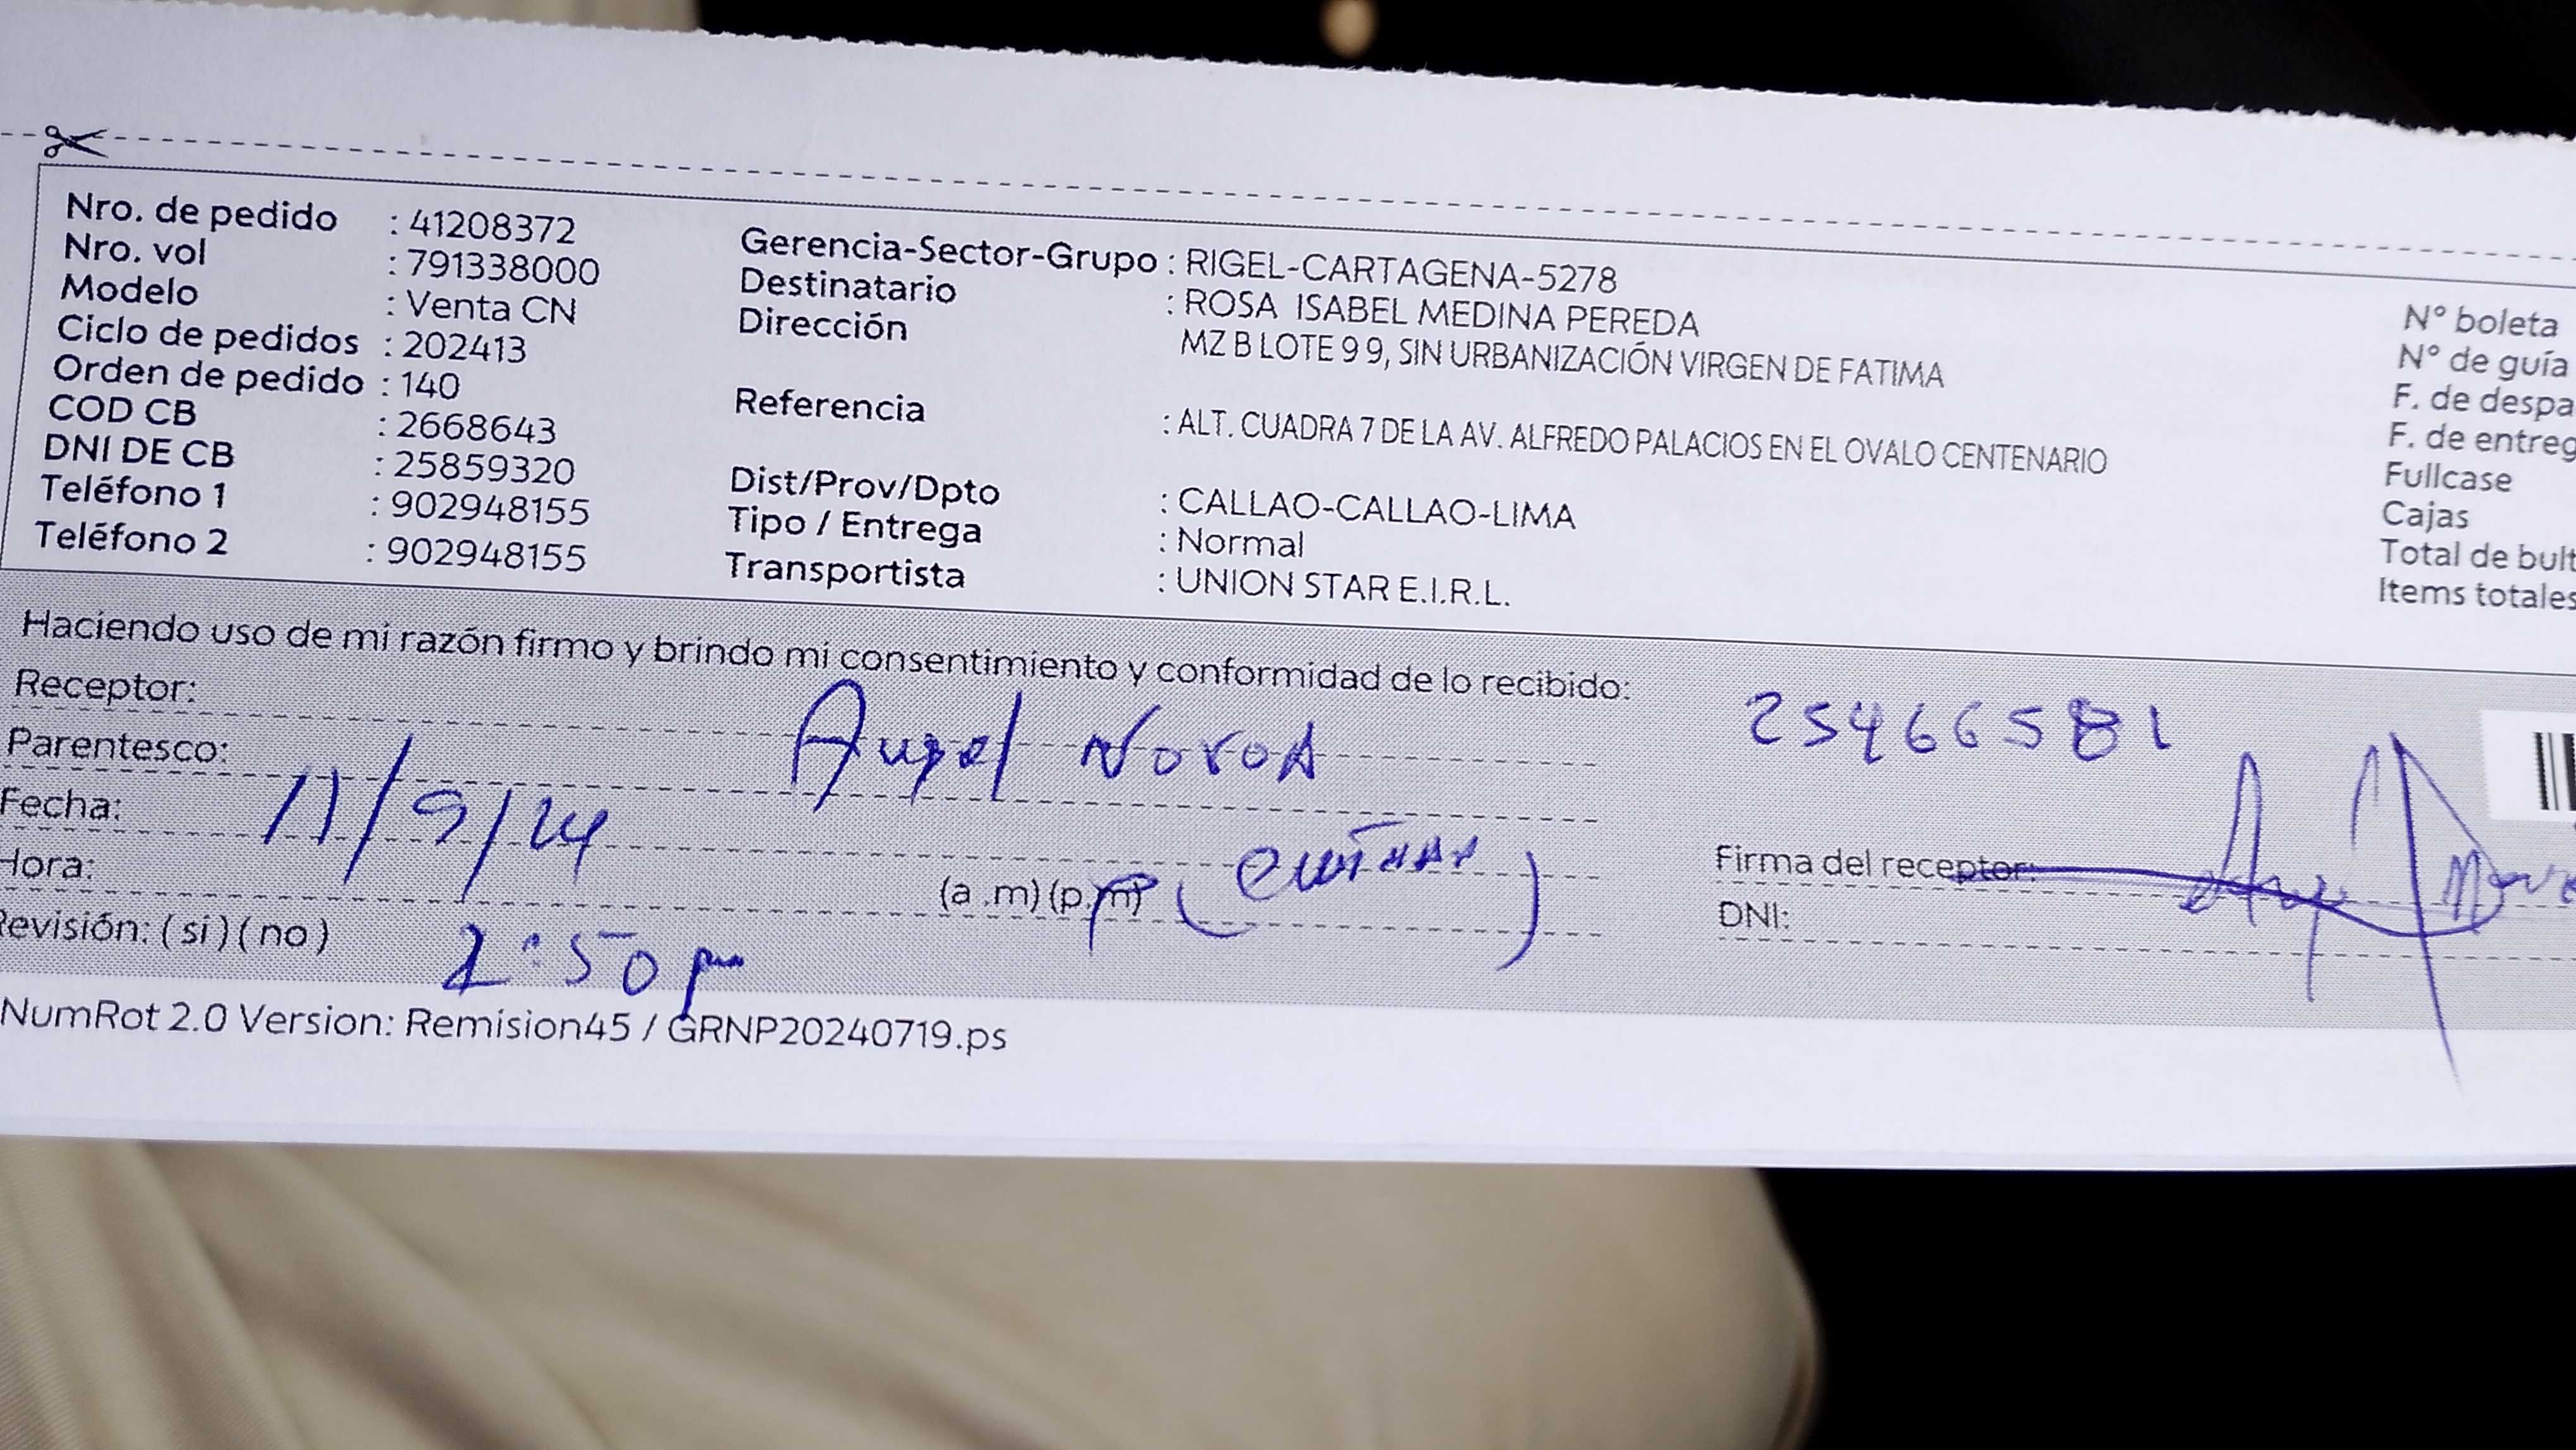 Nro. de pedido : 41208372
Nro. vol : 791338000
Modelo : Venta CN
Ciclo de pedidos : 202413
Orden de pedido : 140
COD CB : 2668643
DNI DE CB : 25859320
Teléfono 1 : 902948155
Teléfono 2 : 902948155
Gerencia-Sector-Grupo : RIGEL-CARTAGENA-5278
Destinatario : ROSA ISABEL MEDINA PEREDA
Dirección
MZ B LOTE 9 9, SIN URBANIZACIÓN VIRGEN DE FATIMA
Referencia : ALT. CUADRA 7 DE LA AV. ALFREDO PALACIOS EN EL OVALO CENTENARIO
Dist/Prov/Dpto : CALLAO-CALLAO-LIMA
Tipo / Entrega : Normal
Transportista : UNION STAR E.I.R.L.
N° boleta
N° de guía
F. de despa
F. de entreg
Fullcase
Cajas
Total de bult
Items totales
Haciendo uso de mi razón firmo y brindo mi consentimiento y conformidad de lo recibido:
Receptor: Angel Noroa 25466581
Parentesco:
Fecha: 11/9/24
Hora: (a .m) (p.m)
Revisión: ( si ) ( no ) 2:50 pm
Firma del receptor:
DNI:
NumRot 2.0 Version: Remision45 / GRNP20240719.ps